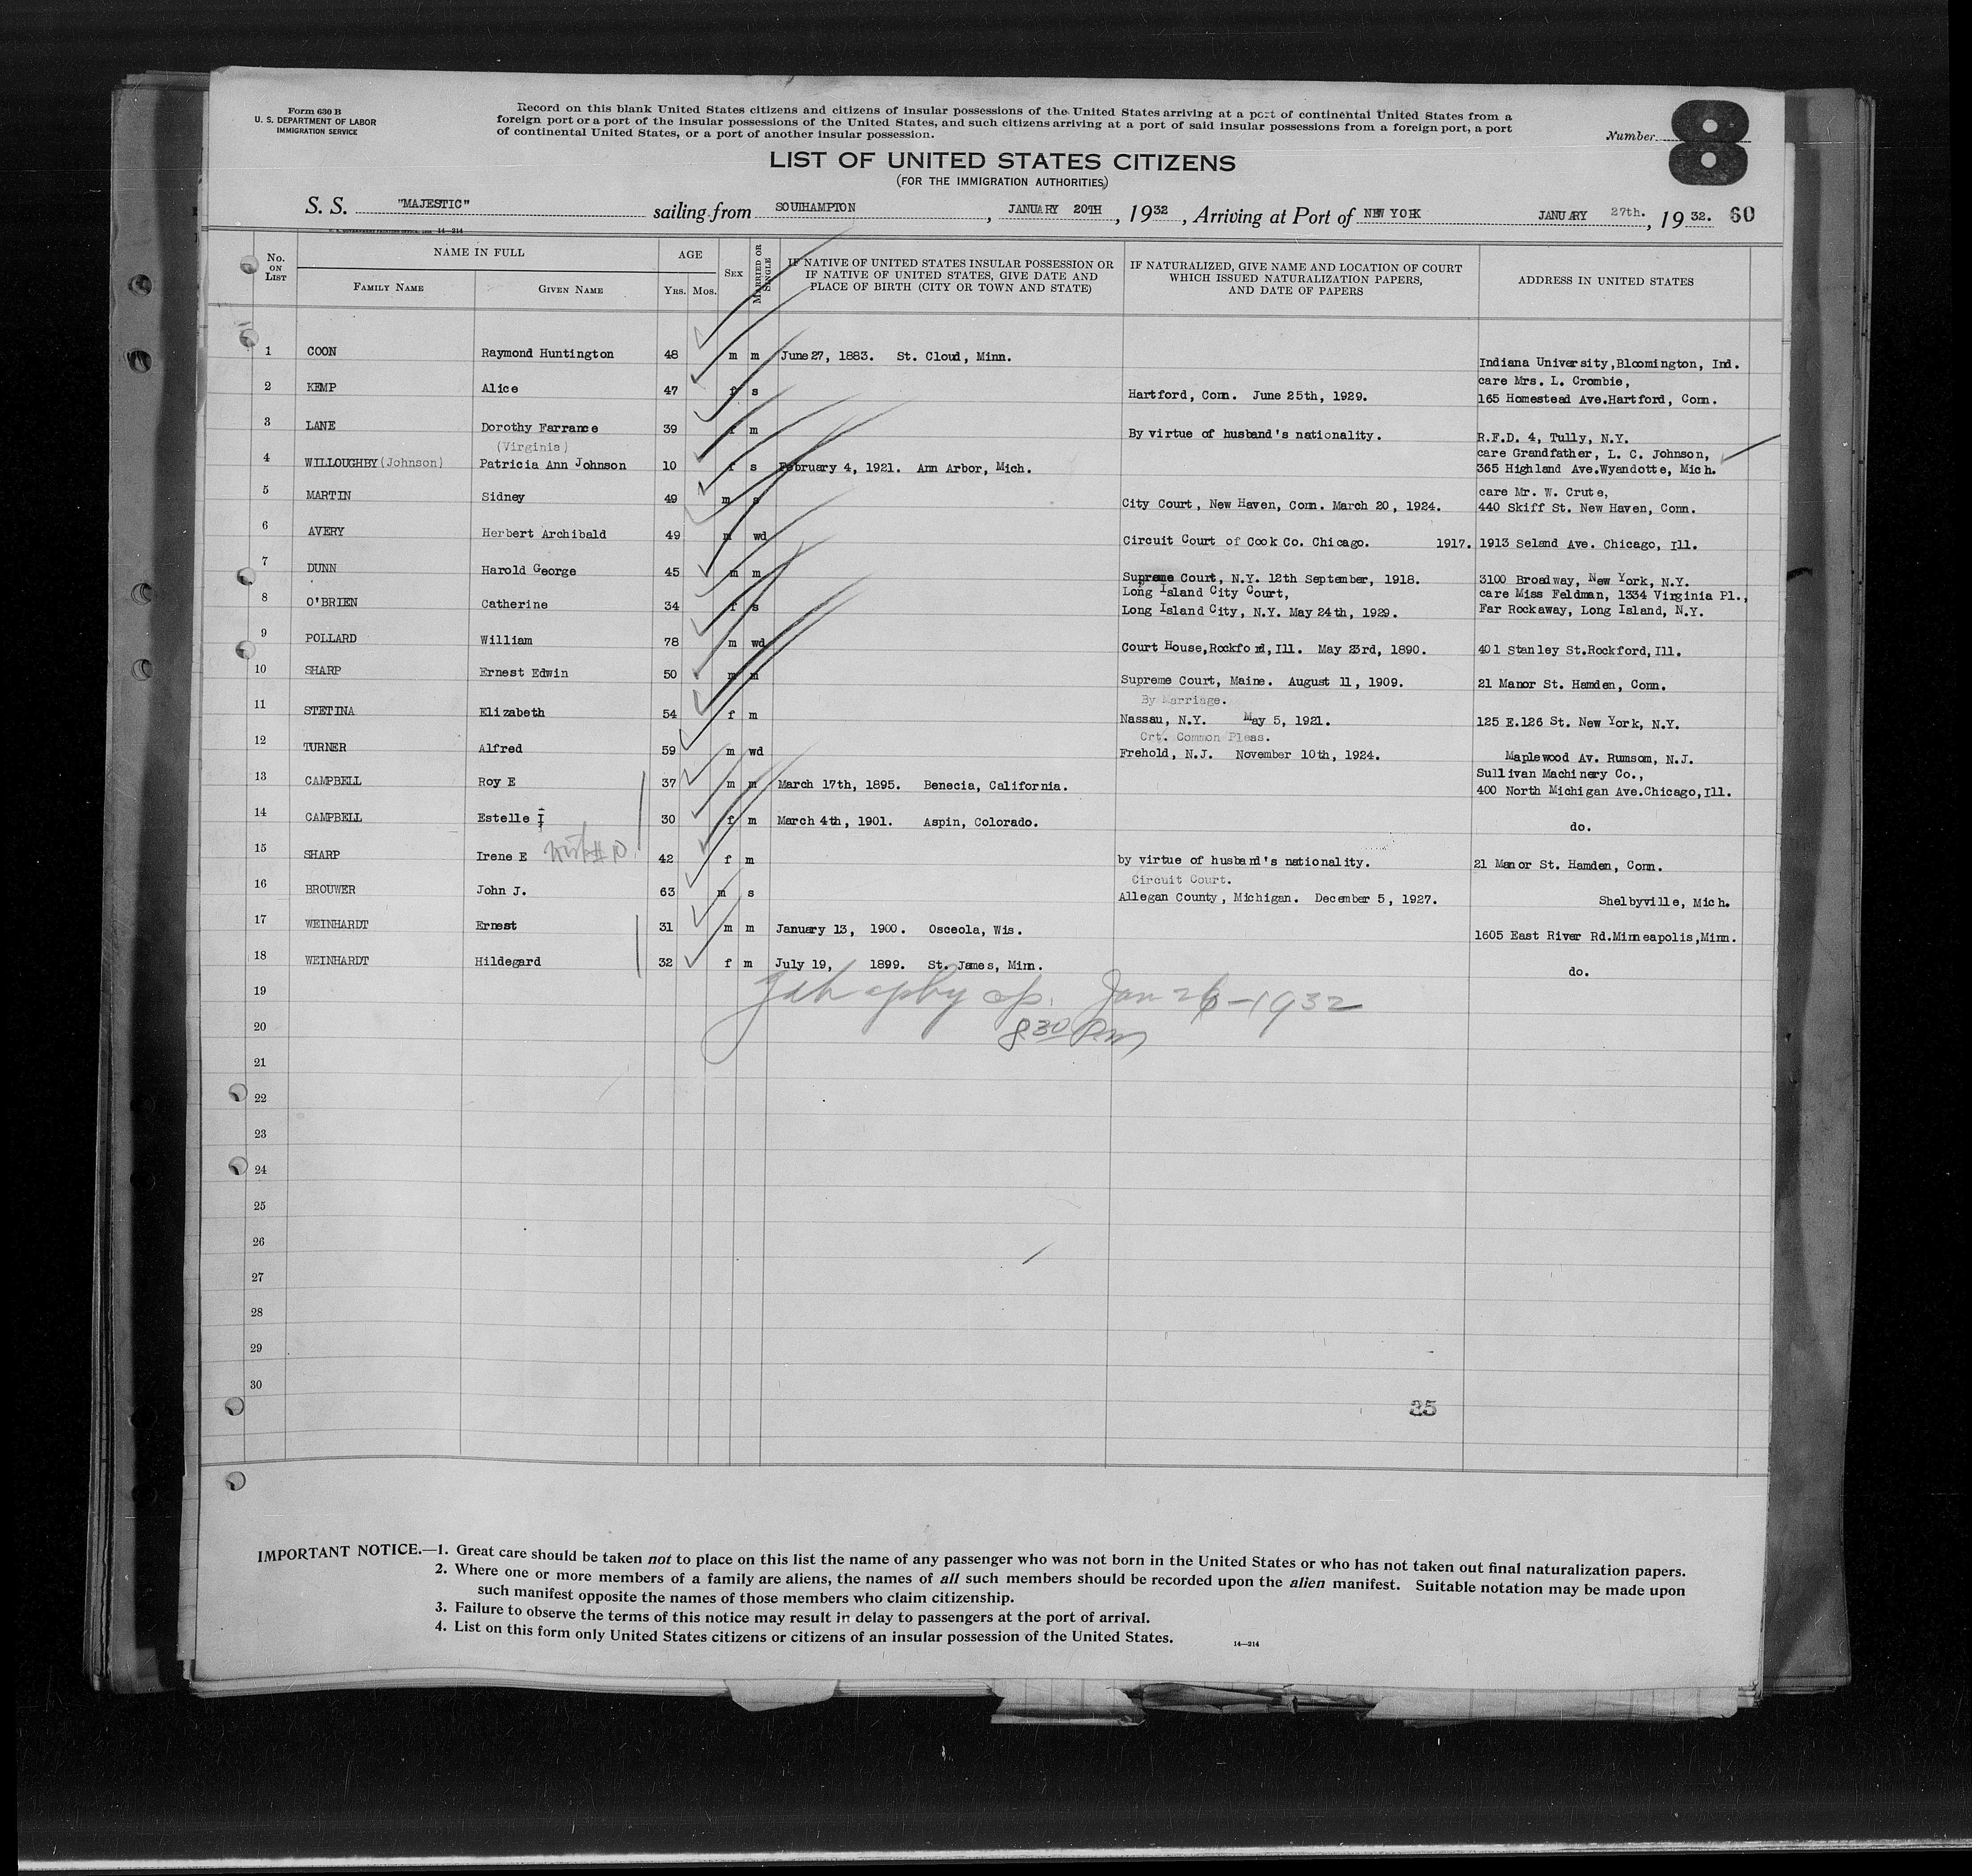 Form 630 B
U. S. DEPARTMENT OF LABOR
IMMIGRATION SERVICE
Record on this blank United States citizens and citizens of insular possessions of the United States arriving at a port of continental United States from a
foreign port or a port of the insular possessions of the United States, and such citizens arriving at a port of said insular possessions from a foreign port, a port
of continental United States, or a port of another insular possession.
Number 8
LIST OF UNITED STATES CITIZENS
(FOR THE IMMIGRATION AUTHORITIES)
S. S. "MAJESTIC" sailing from SOUTHAMPTON, JANUARY 20TH, 1932, Arriving at Port of NEW YORK JANUARY 27th., 1932. 60
14-214
No. ON LIST NAME IN FULL AGE SEX MARRIED OR SINGLE IF NATIVE OF UNITED STATES INSULAR POSSESSION OR IF NATIVE OF UNITED STATES, GIVE DATE AND PLACE OF BIRTH (CITY OR TOWN AND STATE) IF NATURALIZED, GIVE NAME AND LOCATION OF COURT WHICH ISSUED NATURALIZATION PAPERS, AND DATE OF PAPERS ADDRESS IN UNITED STATES
FAMILY NAME GIVEN NAME YRS. MOS.
1 COON Raymond Huntington 48 m m June 27, 1883. St. Cloud, Minn. Indiana University, Bloomington, Ind.
2 KEMP Alice 47 f s Hartford, Conn. June 25th, 1929. care Mrs. L. Crombie,
165 Homestead Ave. Hartford, Conn.
3 LANE Dorothy Farrance 39 f m By virtue of husband's nationality. R.F.D. 4, Tully, N.Y.
(Virginia)
4 WILLOUGHBY (Johnson) Patricia Ann Johnson 10 f s February 4, 1921. Ann Arbor, Mich. care Grandfather, L. C. Johnson,
365 Highland Ave. Wyandotte, Mich.
5 MARTIN Sidney 49 m s City Court, New Haven, Conn. March 20, 1924. care Mr. W. Crute,
440 Skiff St. New Haven, Conn.
6 AVERY Herbert Archibald 49 m wd Circuit Court of Cook Co. Chicago. 1917. 1913 Seland Ave. Chicago, Ill.
7 DUNN Harold George 45 m m Supreme Court, N.Y. 12th September, 1918. 3100 Broadway, New York, N.Y.
8 O'BRIEN Catherine 34 f s Long Island City Court, care Miss Feldman, 1334 Virginia Pl.,
Long Island City, N.Y. May 24th, 1929. Far Rockaway, Long Island, N.Y.
9 POLLARD William 78 m wd Court House, Rockford, Ill. May 23rd, 1890. 401 Stanley St. Rockford, Ill.
10 SHARP Ernest Edwin 50 m m Supreme Court, Maine. August 11, 1909. 21 Manor St. Hamden, Conn.
By Marriage.
11 STETINA Elizabeth 54 f m Nassau, N.Y. May 5, 1921. 125 E.126 St. New York, N.Y.
Crt. Common Pleas.
12 TURNER Alfred 59 m wd Frehold, N.J. November 10th, 1924. Maplewood Av. Rumsom, N.J.
13 CAMPBELL Roy E 37 m m March 17th, 1895. Benecia, California. Sullivan Machinery Co.,
400 North Michigan Ave. Chicago, Ill.
14 CAMPBELL Estelle I 30 f m March 4th, 1901. Aspin, Colorado. do.
15 SHARP Irene E 42 f m by virtue of husband's nationality. 21 Manor St. Hamden, Conn.
Circuit Court.
16 BROUWER John J. 63 m s Allegan County, Michigan. December 5, 1927. Shelbyville, Mich.
17 WEINHARDT Ernest 31 m m January 13, 1900. Osceola, Wis. 1605 East River Rd. Minneapolis, Minn.
18 WEINHARDT Hildegard 32 f m July 19, 1899. St. James, Minn. do.
19 Jan 26-1932
20 8 30 Pm
21
22
23
24
25
26
27
28
29
30
35
IMPORTANT NOTICE.—1. Great care should be taken not to place on this list the name of any passenger who was not born in the United States or who has not taken out final naturalization papers.
2. Where one or more members of a family are aliens, the names of all such members should be recorded upon the alien manifest. Suitable notation may be made upon
such manifest opposite the names of those members who claim citizenship.
3. Failure to observe the terms of this notice may result in delay to passengers at the port of arrival.
4. List on this form only United States citizens or citizens of an insular possession of the United States.
14—214